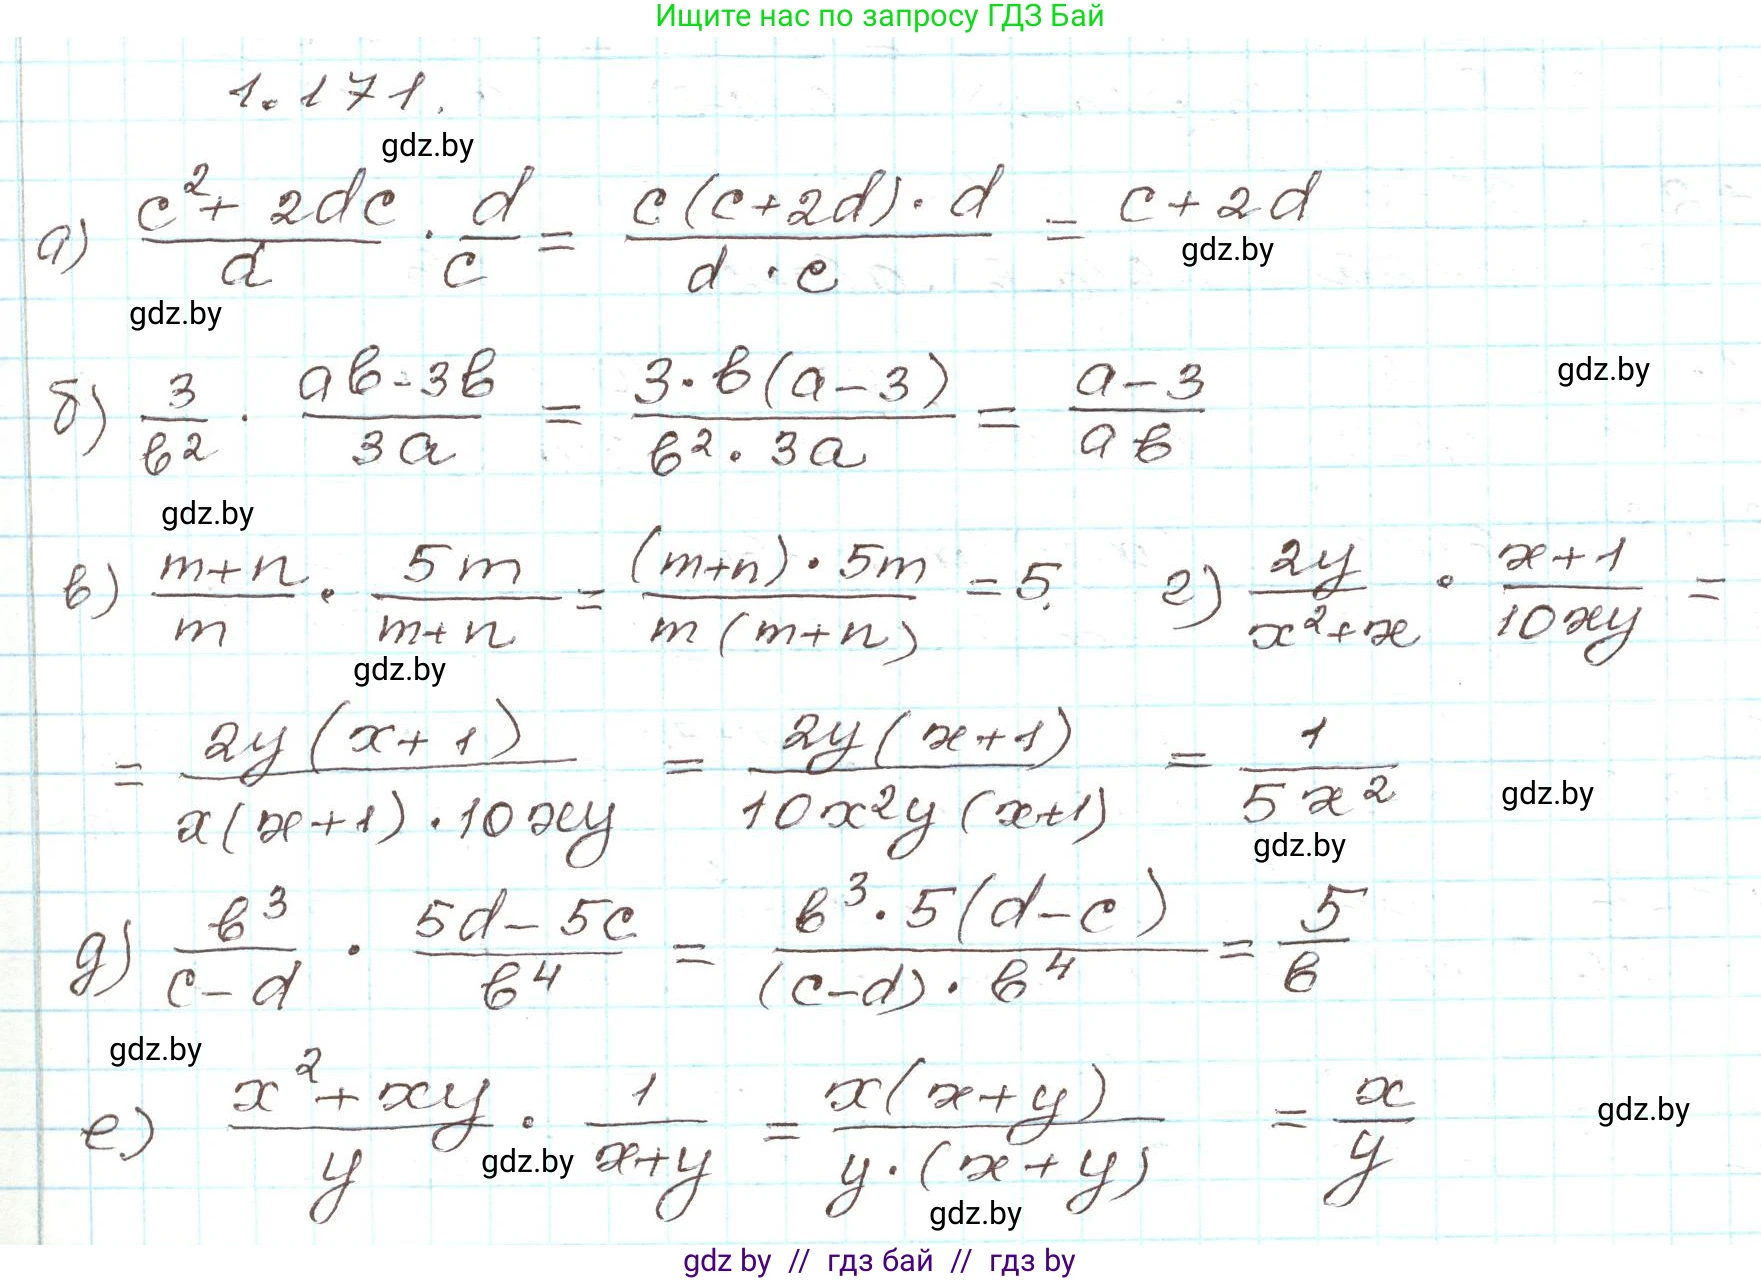 Ищите нас по запросу ГДЗ Бай
1.171.
gdz.by
а) (c²+ 2dc)/d · d/c = (c(c+2d)·d)/(d·c) = c+2d
gdz.by
gdz.by
б) 3/b² · (ab-3b)/(3a) = (3·b(a-3))/(b²·3a) = (a-3)/(ab)
gdz.by
gdz.by
в) (m+n)/m · 5m/(m+n) = ((m+n)·5m)/(m(m+n)) = 5. г) 2y/(x²+x) · (x+1)/(10xy) =
gdz.by
= (2y(x+1))/(x(x+1)·10xy) = (2y(x+1))/(10x²y(x+1)) = 1/(5x²)
gdz.by
gdz.by
д) b³/(c-d) · (5d-5c)/b⁴ = (b³·5(d-c))/((c-d)·b⁴) = 5/b
gdz.by
е) (x²+xy)/y · 1/(x+y) = (x(x+y))/(y·(x+y)) = x/y
gdz.by
gdz.by
gdz.by
gdz by // гдз бай // гдз by